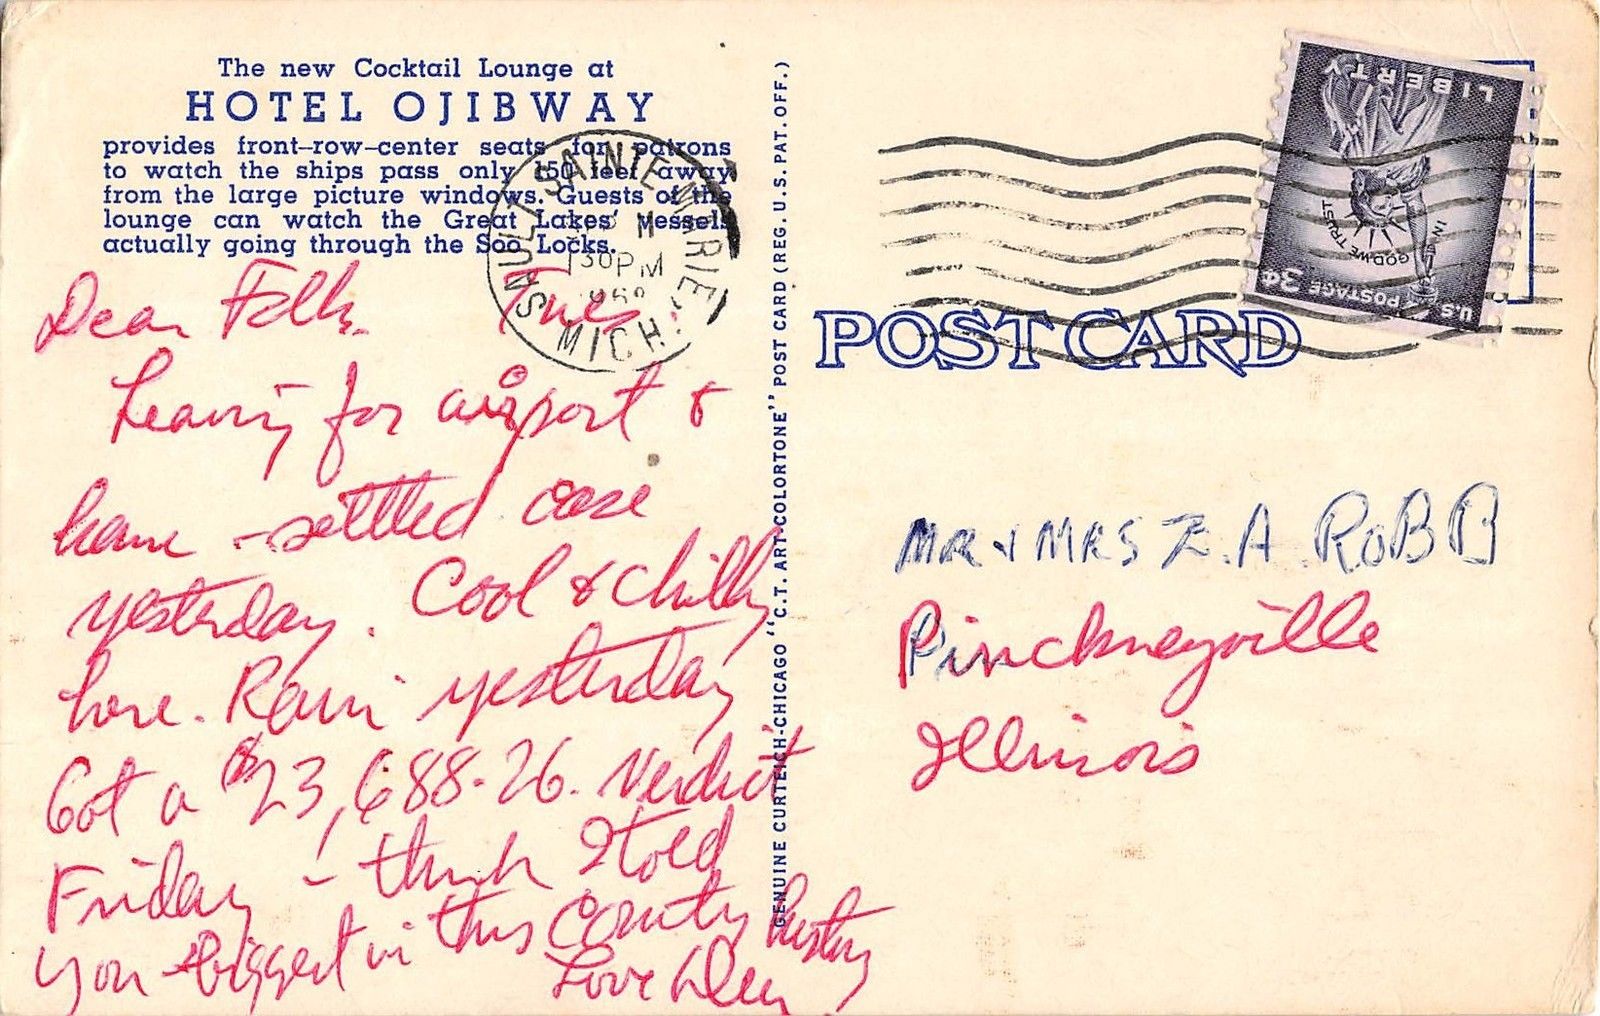 The new Cocktail Lounge at
HOTEL OJIBWAY
provides front-row-center seats for patrons
to watch the ships pass only 150 feet away
from the large picture windows. Guests of the
lounge can watch the Great Lakes' vessels
actually going through the Soo Locks.
Dear Folks. Tues.
Leaving for airport &
home - settled case
yesterday. Cool & chilly
here. Rain yesterday
Got a $23,688.26. Verdict
Friday - think I told
you biggest in this County history
Love
SAULT STE SAINTE MARIE,
130PM
MICH.
GENUINE CURTEICH-CHICAGO "C.T. ART-COLORTONE" POST CARD (REG. U.S. PAT. OFF.)
LIBERTY
IN GOD WE TRUST
U.S. POSTAGE 3¢
POST CARD
MR & MRS E. A. ROBB
Pinckneyville
Illinois